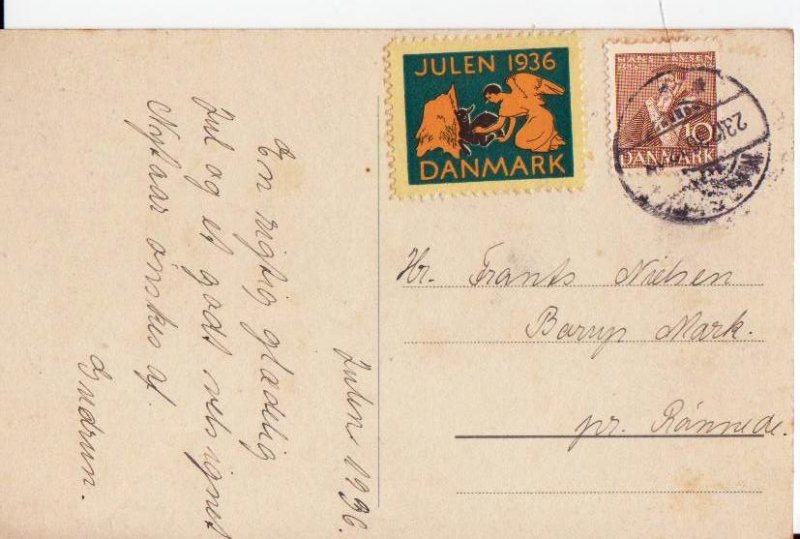 Julen 1936.
En rigtig glædelig
Jul og et godt velsignet
Nytaar ønskes af
Gudrun.
JULEN 1936
DANMARK
HANS TAVSEN
10
DANMARK
23.12.36
Hr. Frants Nielsen
Barup Mark.
pr. Rønnede.